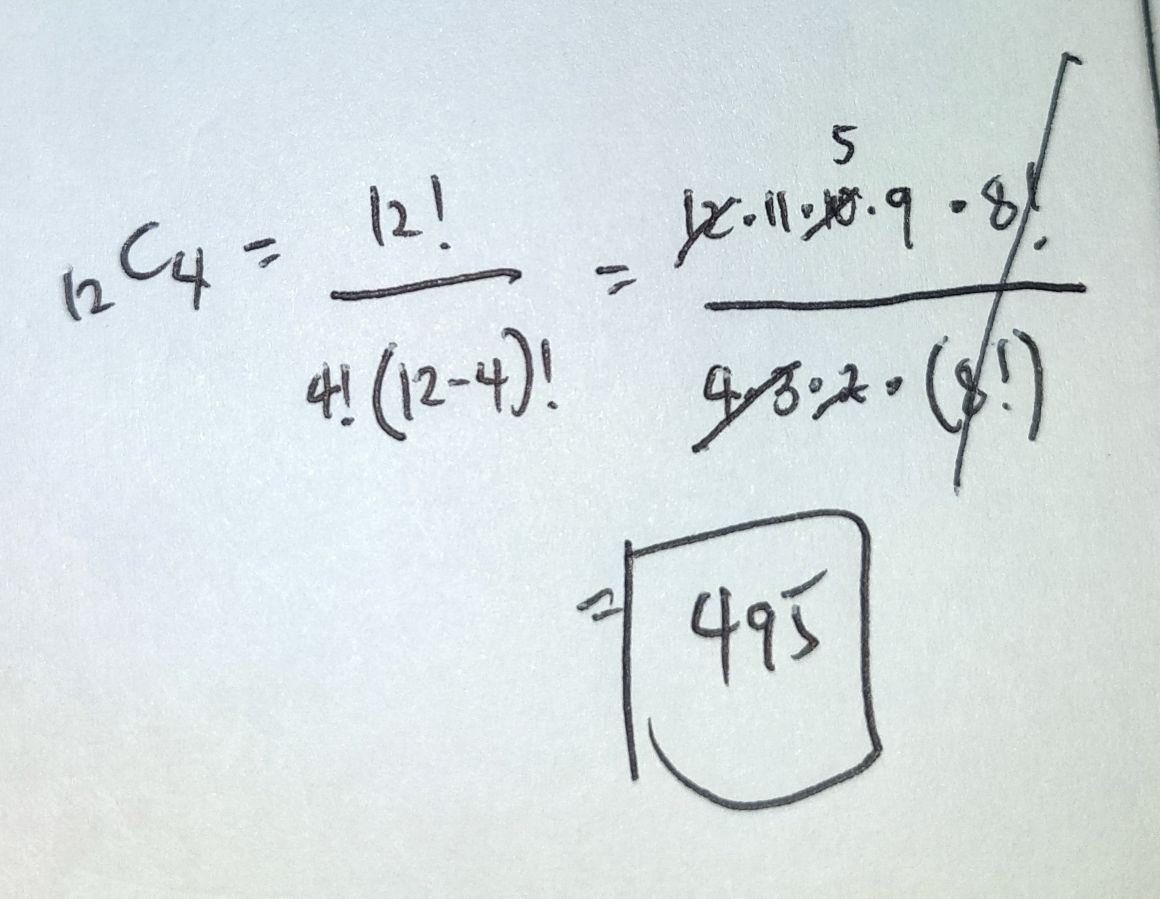 ₁₂C₄ = 12! / 4!(12-4)! = 12·11·10·9·8! / 4·3·2·(8!)
5
= 495